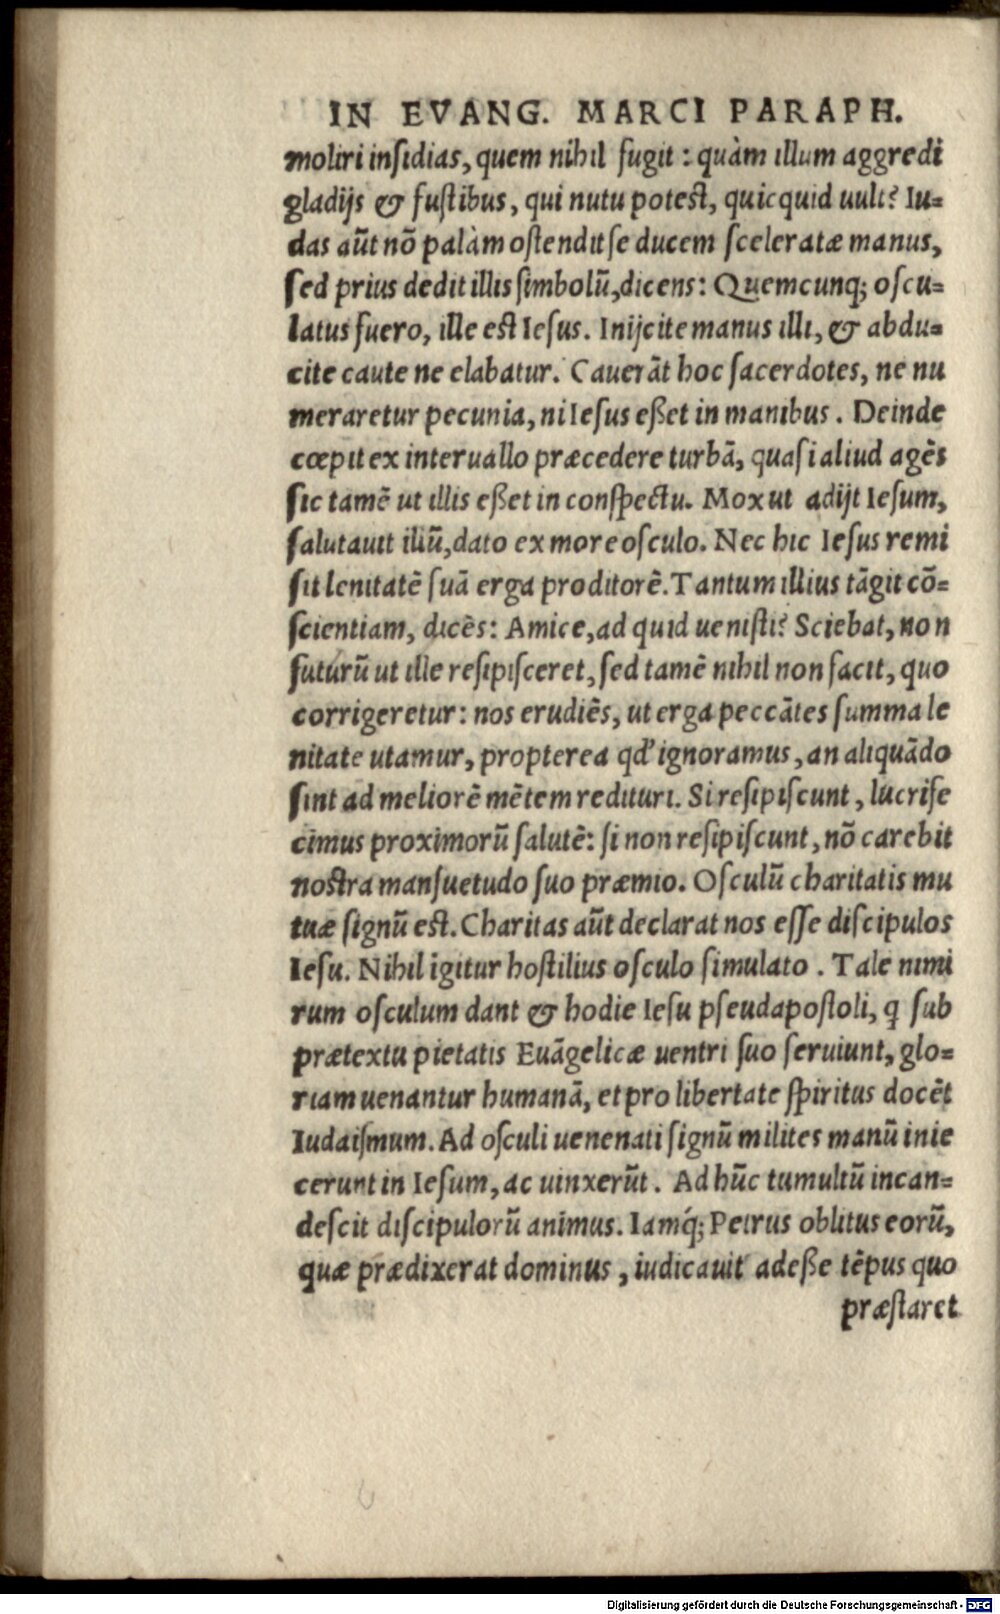 IN EVANG. MARCI PARAPH.
moliri insidias, quem nihil fugit: quàm illum aggredi
gladijs & fustibus, qui nutu potest, quicquid uult? Iu-
das aūt nō palàm ostendit se ducem sceleratæ manus,
sed prius dedit illis simbolū, dicens: Quemcunq; oscu-
latus fuero, ille est Iesus. Inijcite manus illi, & abdu-
cite caute ne elabatur. Cauerāt hoc sacerdotes, ne nu
meraretur pecunia, ni Iesus eßet in manibus. Deinde
cœpit ex interuallo præcedere turbā, quasi aliud agēs
sic tamē ut illis eßet in conspectu. Mox ut adijt Iesum,
salutauit illū, dato ex more osculo. Nec hic Iesus remi
sit lenitatē suā erga proditorē. Tantum illius tāgit cō-
scientiam, dicēs: Amice, ad quid uenisti? Sciebat, non
futurū ut ille resipisceret, sed tamē nihil non facit, quo
corrigeretur: nos erudiēs, ut erga peccātes summa le
nitate utamur, propterea qd' ignoramus, an aliquādo
sint ad meliorē mētem redituri. Si resipiscunt, lucrife
cimus proximorū salutē: si non resipiscunt, nō carebit
nostra mansuetudo suo præmio. Osculū charitatis mu
tuæ signū est. Charitas aūt declarat nos esse discipulos
Iesu. Nihil igitur hostilius osculo simulato. Tale nimi
rum osculum dant & hodie Iesu pseudapostoli, q̨ sub
prætextu pietatis Euāgelicæ uentri suo seruiunt, glo-
riam uenantur humanā, et pro libertate spiritus docēt
Iudaismum. Ad osculi uenenati signū milites manū inie
cerunt in Iesum, ac uinxerūt. Ad hūc tumultū incan-
descit discipulorū animus. Iamq́; Petrus oblitus eorū,
quæ prædixerat dominus, iudicauit adeße tēpus quo
præstaret
Digitalisierung gefördert durch die Deutsche Forschungsgemeinschaft - DFG